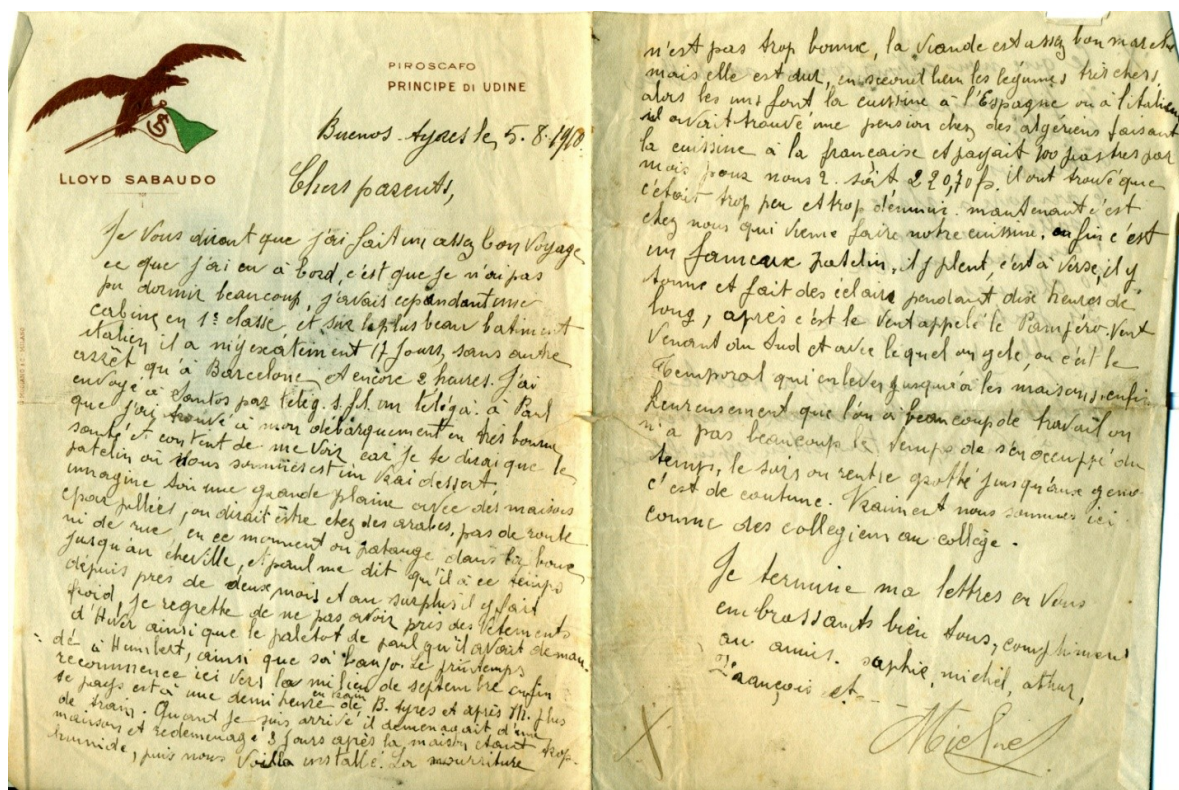 PIROSCAFO
PRINCIPE DI UDINE
LLOYD SABAUDO
Buenos-Ayres le, 5.8.19
Chers parents,
Je vous dirant que j'ai fait un assez bon voyage
ce que j'ai eu à bord, c'est que je n'ai pas
pu dormir beaucoup, j'avais cependant une
cabine en 1e classe et sur le plus beau batiment
italien il a mis exatement 17 jours, sans autre
arrêt qu'à Barcelone, et encore 2 heures. J'ai
envoyé à Santos par télég. s.f.l. un télégr. à Paul
que j'ai trouvé à mon débarquement en très bonne
santé et content de me voir car je te dirai que le
patelin où nous sommes est un vrai déssert,
immagine toi une grande plaine avec des maisons
éparpillées, on dirait être chez des arabes, pas de route
ni de rue, en ce moment on patauge dans la boue
jusqu'au cheville, et paul me dit qu'il a ce temps
depuis près de deux mois et au surplus il y fait
froid. Je regrette de ne pas avoir pris des vêtements
d'hiver ainsi que le paletot de paul qu'il avait deman-
dé à Humbert, ainsi que son banjo. Le printemps
recommence ici vers la milieu de septembre enfin
se pays est à une demi heure en train de B. Ayres et après 1h. plus
de tram. Quant je suis arrivé il demenagait d'une
maison et redemenagé 3 jours après la maison étant trop
humide, puis nous voilla installé. La nourriture
n'est pas trop bonne, la viande est assez bon marché
mais elle est dur, en second lieu les legumes très chers,
alors les uns font la cuissine à l'Espagne ou à l'italien
il avait trouvé une pension chez des algeriens faisant
la cuissine à la francaise et payait 100 piastres par
mois pour nous 2. soit 220,70 fs. il ont trouvé que
c'était trop peu et trop d'ennui. mantenant c'est
chez nous qui vienne faire notre cuissine. enfin c'est
un fameux patelin, il y pleut, c'est à verse, il y
tonne et fait des éclairs pendant dix heures de
long, après c'est le vent appelé le Pampéro. vent
venant du Sud et avec lequel on gele, ou c'est le
Temporal qui enlever jusqu'à les maisons, enfin
heureusement que l'on a beaucoup de travail on
n'a pas beaucoup le temps de s'en occuppé du
temps, le soirs on rentre crotté jusqu'aux genoux
c'est de coutume. Vraiment nous sommes ici
comme des collegiens au collège.
Je termine ma lettres en vous
embrassants bien tous, compliment
au amis. sophie, michel, athur,
François et - - -
Michel